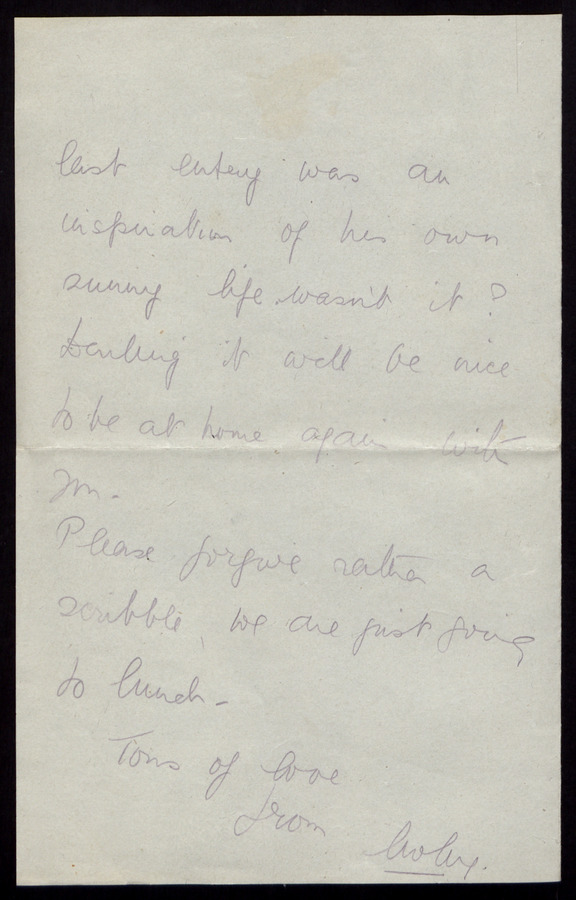 last entery was an
inspiration of his own
sunny life wasn't it?
Darling it will be nice
to be at home again with
you.
Please forgive rather a
scribble, we are just going
to lunch –
Tons of love
from